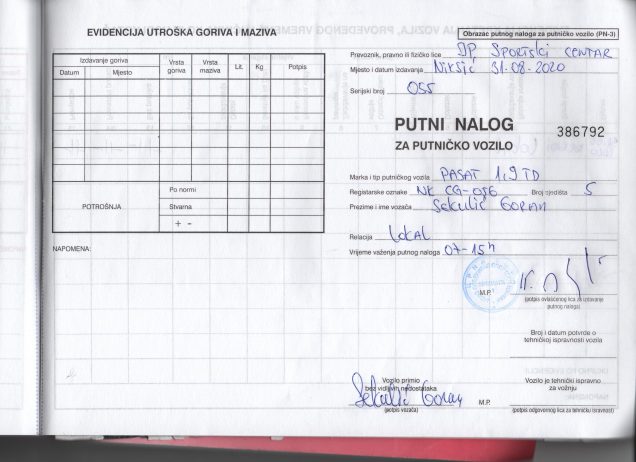 EVIDENCIJA UTROŠKA GORIVA I MAZIVA
Izdavanje goriva
Datum Mjesto
Vrsta goriva
Vrsta maziva
Lit.
Kg
Potpis
POTROŠNJA
Po normi
Stvarna
+ -
NAPOMENA:
Obrazac putnog naloga za putničko vozilo (PN-3)
Prevoznik, pravno ili fizičko lice JP Sportski centar
Mjesto i datum izdavanja Nikšić 31-08-2020
Serijski broj 055
PUTNI NALOG
ZA PUTNIČKO VOZILO
386792
Marka i tip putničkog vozila PASAT 1,9 TD
Registarske oznake NK CG-056 Broj sjedišta 5
Prezime i ime vozača Sekulić Goran
Relacija Lokal
Vrijeme važenja putnog naloga 07-15h
M.P.
(potpis ovlašćenog lica za izdavanje
putnog naloga)
Broj i datum potvrde o
tehničkoj ispravnosti vozila
Vozilo primio
bez vidljivih nedostataka
Sekulić Goran
(potpis vozača)
M.P.
Vozilo je tehnički ispravno
za vožnju
(potpis odgovornog lica za tehničku ispravnost)